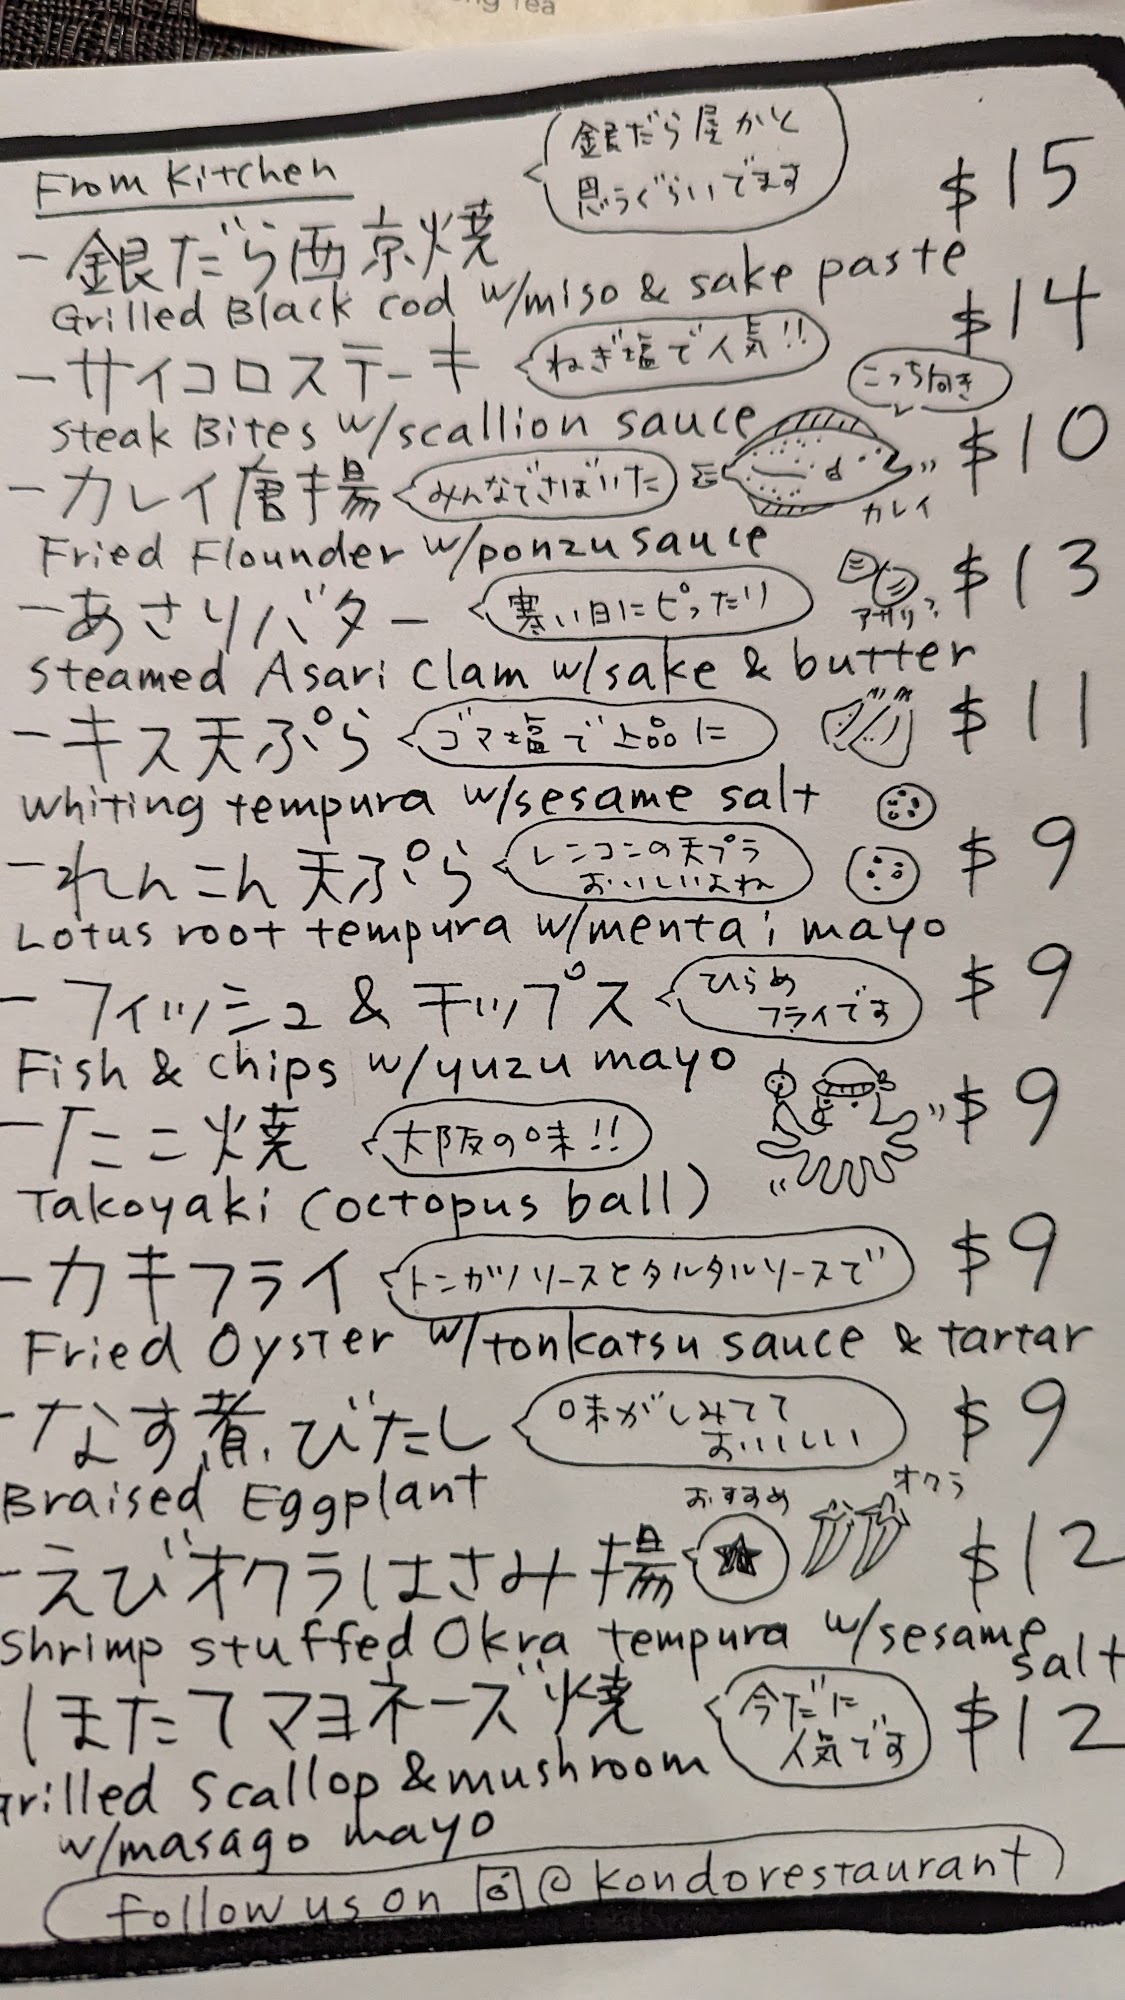 ng Tea
From Kitchen
銀だら屋かと
思うぐらいでます
$15
- 銀だら西京焼
Grilled Black cod w/miso & sake paste
- サイコロステーキ
ねぎ塩で人気!!
$14
Steak Bites w/scallion sauce
こっち向き
- カレイ唐揚
みんなでさばいた
カレイ
$10
Fried Flounder w/ponzu sauce
- あさりバター
寒い日にピッたり
アサリ?
$13
Steamed Asari Clam w/sake & butter
- キス天ぷら
ゴマ塩で上品に
$11
Whiting tempura w/sesame salt
- れんこん天ぷら
レンコンの天プラ
おいしいよね
$9
Lotus root tempura w/mentai mayo
- フィッシュ&チップス
ひらめ
フライです
$9
Fish & chips w/yuzu mayo
- たこ焼
大阪の味!!
$9
Takoyaki (octopus ball)
- カキフライ
トンカツソースとタルタルソースで
$9
Fried Oyster w/tonkatsu sauce & tartar
- なす煮びたし
味がしみてて
おいしい
$9
Braised Eggplant
おすすめ
オクラ
- えびオクラはさみ揚
$12
Shrimp stuffed Okra tempura w/sesame
salt
ほたてマヨネーズ焼
今だに
人気です
$12
Grilled Scallop & mushroom
w/masago mayo
Follow us on @kondorestaurant